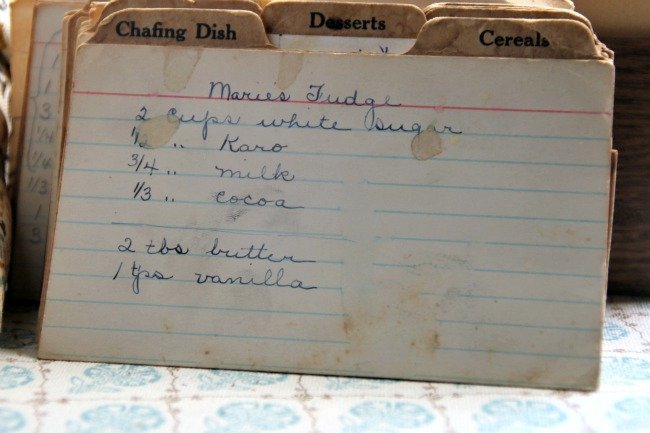 Chafing Dish
Desserts
Cereals
Maries Fudge
2 cups white sugar
1/2 " Karo
3/4 " milk
1/3 " cocoa
2 tbs butter
1 tps vanilla
1
1
3
1/4
1/4
1/3
1
3